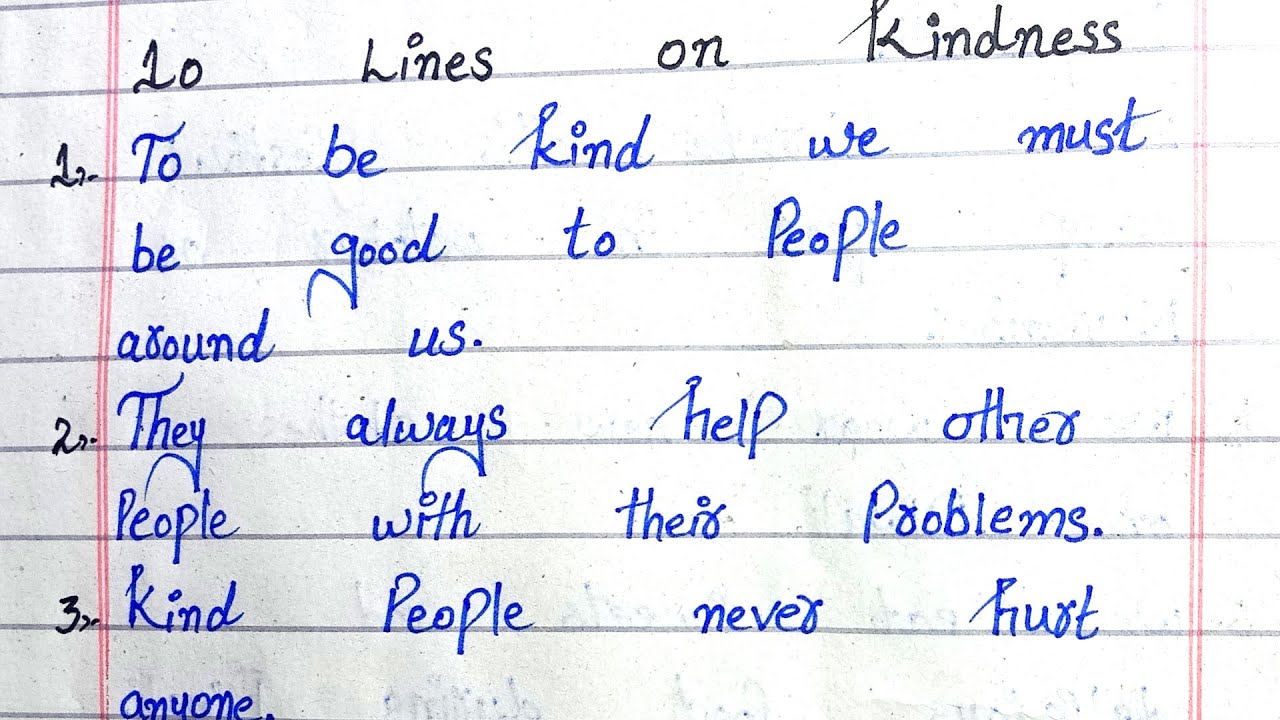 10 Lines on Kindness
1. To be kind we must
be good to People
around us.
2. They always help other
People with their Problems.
3. Kind People never hurt
anyone.